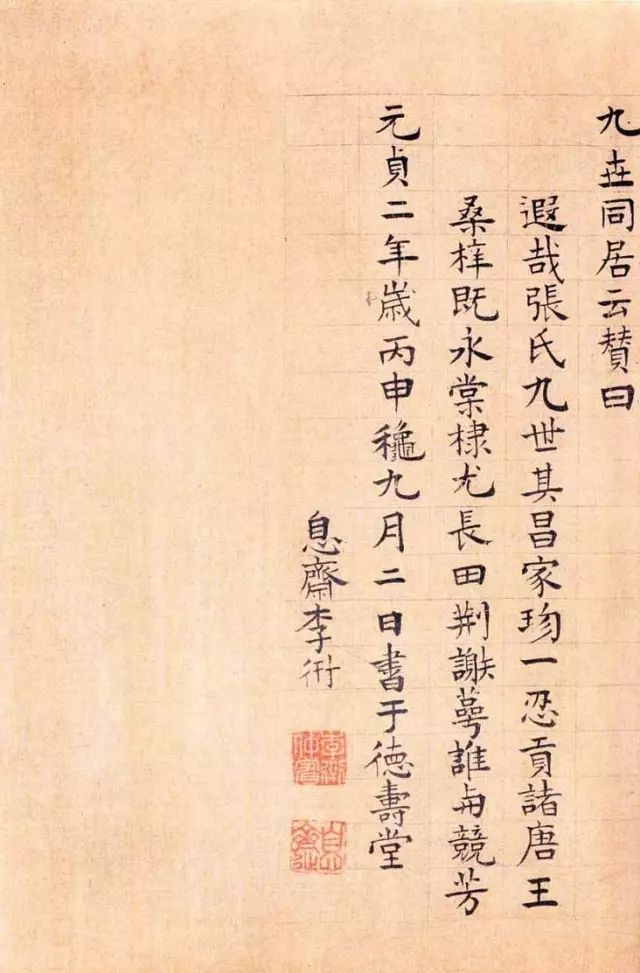 九世同居云赞曰
遐哉張氏九世其昌家珎一忍貢諸唐王
桑梓既永棠棣尤長田荆謝萼誰與競芳
元貞二年歲丙申穐九月二日書于德壽堂
息齋李衎
李衎仲賓
息齋